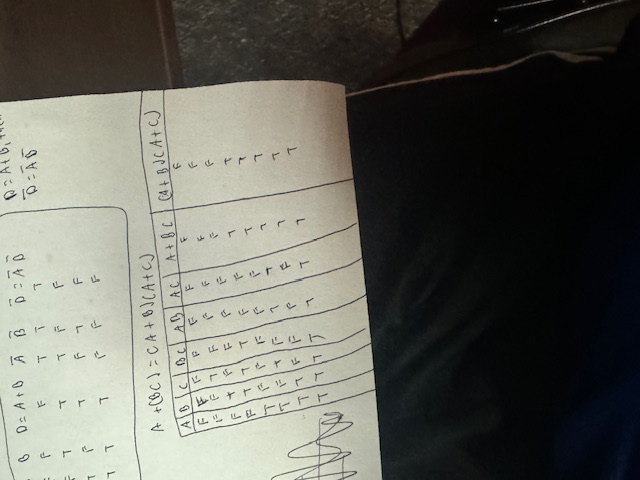 B D = A + B Ā B̄ D̄ = Ā B̄
F F F T T T
F T T T F F
T F T F T F
T T T F F F
D = A + B,
D̄ = Ā B̄
A + (BC) = (A + B)(A + C)
A B C BC AB AC A + BC (A + B)(A + C)
F F F F F F F F
F F T F F F F F
F T F F F F F F
F T T T F F T T
T F F F F F T T
T F T F F T T T
T T F F T F T T
T T T T T T T T